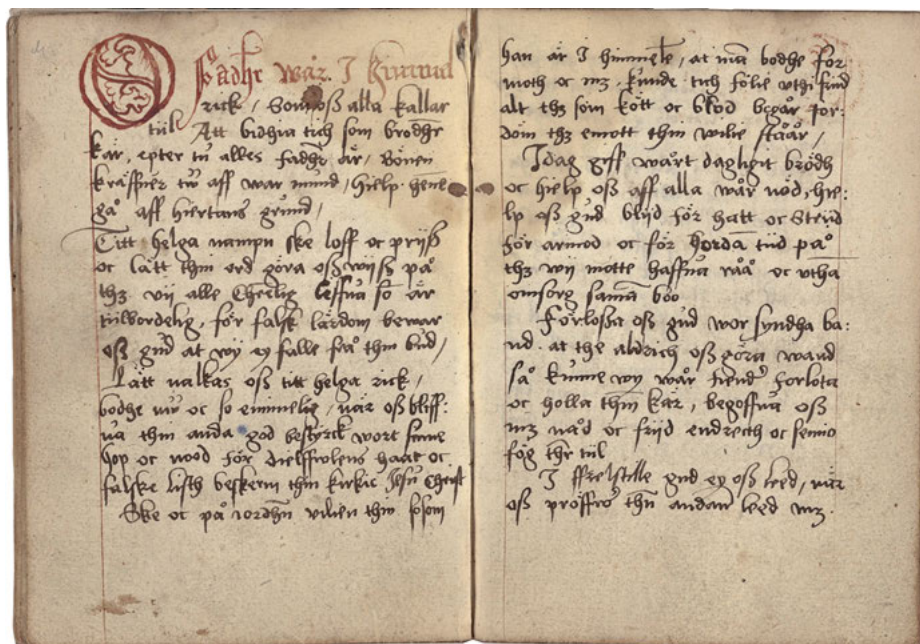 O Fadhr wår I himmel
rick, Som oß alla kallar
tiil Att bidhia tich som brodhr
kär, epter tu alles fadhr är, Bönen
kräffuer tw aff war mund, hielp hene
gå aff hiertans grund,
Titt helga nampn ske loff oc prijß
oc lätt thin ord göra oß wijß på
thz vij alle Christelig leffua so är
tiilbördelig, för falsk lärdom bewar
oß gud at wy ey falle frå thin bud,
Lätt nalkas oß titt helga rick,
bodhe nw oc so ewinnelig, när oß bliff:
ua thin anda god bestyrck wort sinne
hop oc mood för dieffwlens haat oc
falske listh beskerm thin kirkie Jesu Christ
Ske oc på iordhn vilien thin såsom
han är I himmele, at mā bodhe for
moth oc mz kunde tich fölie vthi sind
alt thz som kött oc blod begår for:
döm thz emott thin wilie ståår,
Idag giff wårt dagligit brödh
oc hielp oß aff alla wår nöd, hie:
lp oß gud blijd för hatt oc strijd
för armod oc för hordā tiid på
thz wij motte haffua råå oc vthā
omsorg samā boo
Förloßa oß gud wor syndha ba:
nd at the aldrich oß göra wand
så kunne wy wår fiend forlota
oc holla thm kär, begåffua oß
mz nåd oc frijd endrecth oc semio
fög thr tiil
I frelstille gud ey oß leed, när
oß pröffwr thn andan leed mz